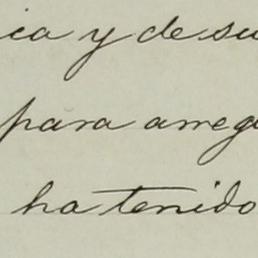 ica y de su
para arreg
ha tenido